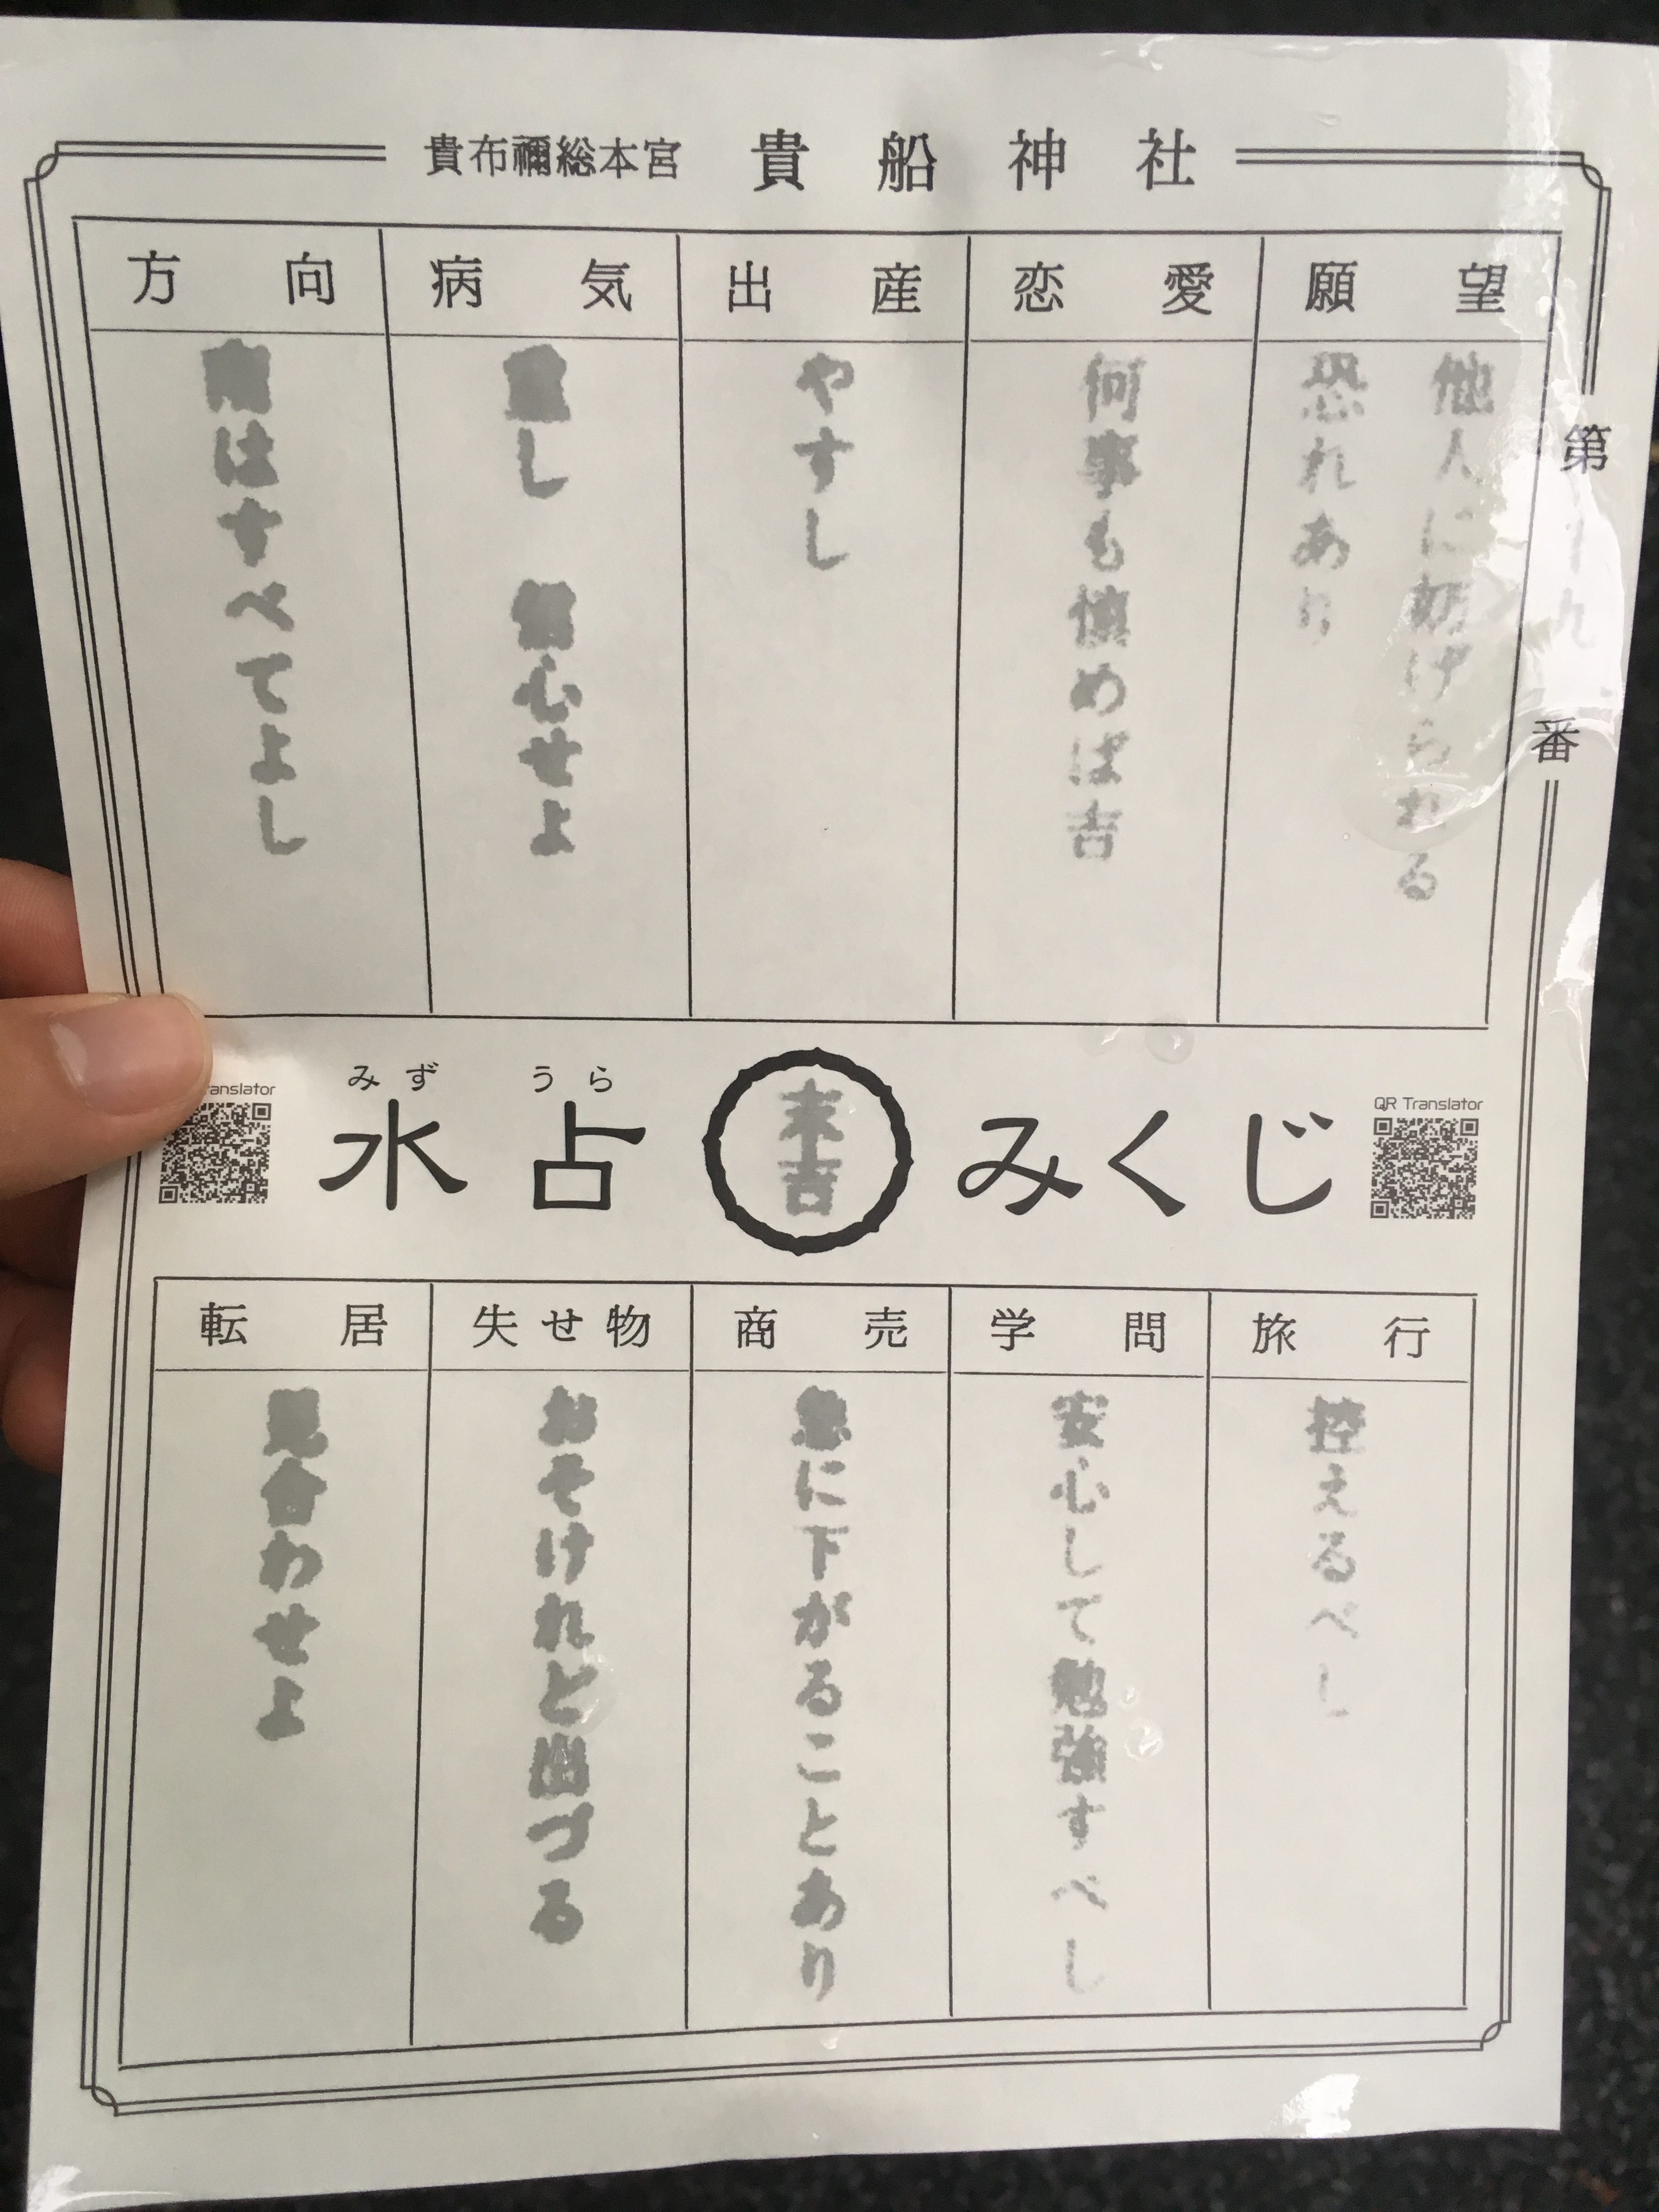 貴布禰総本宮 貴船神社
第十九番
願望
他人に妨げられる
恐れあり
恋愛
何事も慎めば吉
出産
やすし
病気
重し 信心せよ
方向
南はすべてよし
QR Translator
水占みくじ
みず うら
末吉
anslator
旅行
控えるべし
学問
安心して勉強すべし
商売
急に下がることあり
失せ物
おそけれど出づる
転居
見合わせよ